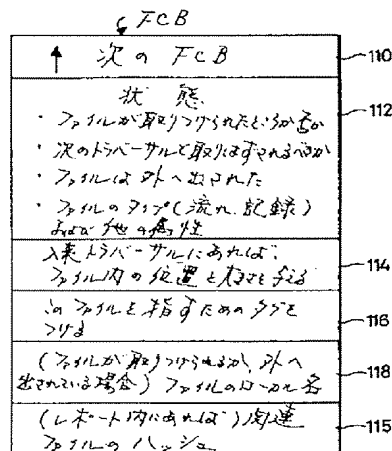 FCB
次の FCB
110
状態
112
・ファイルが取りつけられたどうか否か
・次のトラバーサルで取りはずされるべきか
・ファイルは外へ出された
・ファイルのタイプ(流れ、記録)
および他の属性
入来トラバーサルにあれば、
114
ファイル内の位置と長さを与える
このファイルを指すためのタグを
116
つける
(ファイルが取りつけられるか、外へ
118
出されている場合)ファイルのローカル名
(レポート内にあれば)関連
115
ファイルのハッシュ